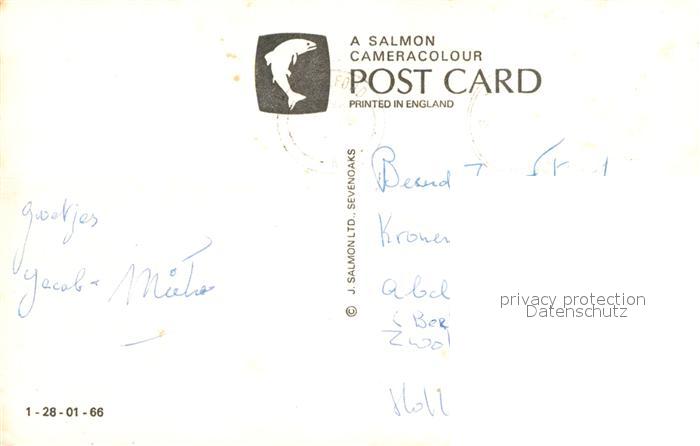 A SALMON
CAMERACOLOUR
POST CARD
PRINTED IN ENGLAND
© J. SALMON LTD., SEVENOAKS
groetjes
Jacob
Kroner
Abd
Zwol
Holl
privacy protection
Datenschutz
1 - 28 - 01 - 66